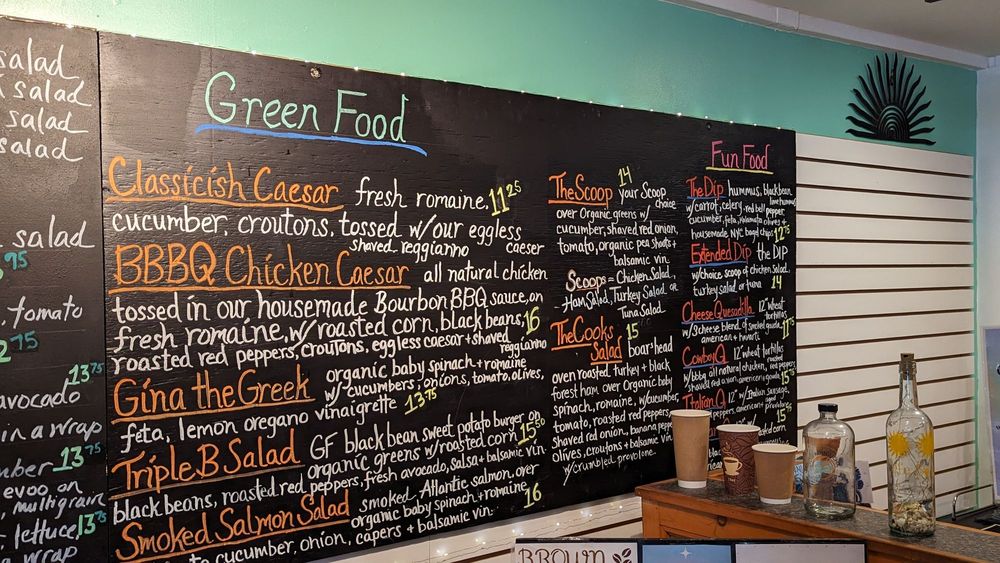 salad
salad
salad
salad
salad
95
tomato
75
13 75
avocado
in a wrap
13 75
evoo on
multigrain
lettuce, 13 75
wrap
Green Food
Classicish Caesar fresh romaine, 11 25
cucumber, croutons, tossed w/our eggless
shaved reggianno caeser
BBBQ Chicken Caesar all natural chicken
tossed in our housemade Bourbon BBQ sauce, on
fresh romaine, w/ roasted corn, black beans, 16
roasted red peppers, croutons, eggless caesar + shaved
reggianno
Gina the Greek organic baby spinach + romaine
w/ cucumbers, onions, tomato, olives,
feta, lemon oregano vinaigrette 13 75
Triple B Salad GF black bean sweet potato burger on
organic greens w/ roasted corn, 15 50
black beans, roasted red peppers, fresh avocado, salsa + balsamic vin.
Smoked Salmon Salad smoked Atlantic salmon, over
organic baby spinach + romaine 16
cucumber, onion, capers + balsamic vin.
The Scoop 14 your Scoop
choice
over Organic greens w/
cucumber, shaved red onion,
tomato, organic pea shoots +
balsamic vin.
Scoops = Chicken Salad,
Ham Salad, Turkey Salad or
Tuna Salad
The Cooks 15
Salad boar-head
oven roasted turkey + black
forest ham over Organic baby
spinach, romaine, w/cucumber,
tomato, roasted red peppers,
shaved red onion, banana peppers
olives, croutons + balsamic vin.
w/crumbled provolone.
Fun Food
The Dip hummus, black bean
w/ carrot, celery, red bell pepper
cucumber, feta, kalamata olives +
housemade NYC bagel chips 12 75
Extended Dip the DIP
w/choice scoop of chicken salad,
turkey salad or tuna 14
Cheese Quesadilla 12" wheat
tortillas
w/ 3 cheese blend of smoked gouda,
american + havarti
Cowboy Q 12" wheat tortillas
w/bbq all natural chicken,
Italian Q 12" w/ Italian sausage,
BROWN